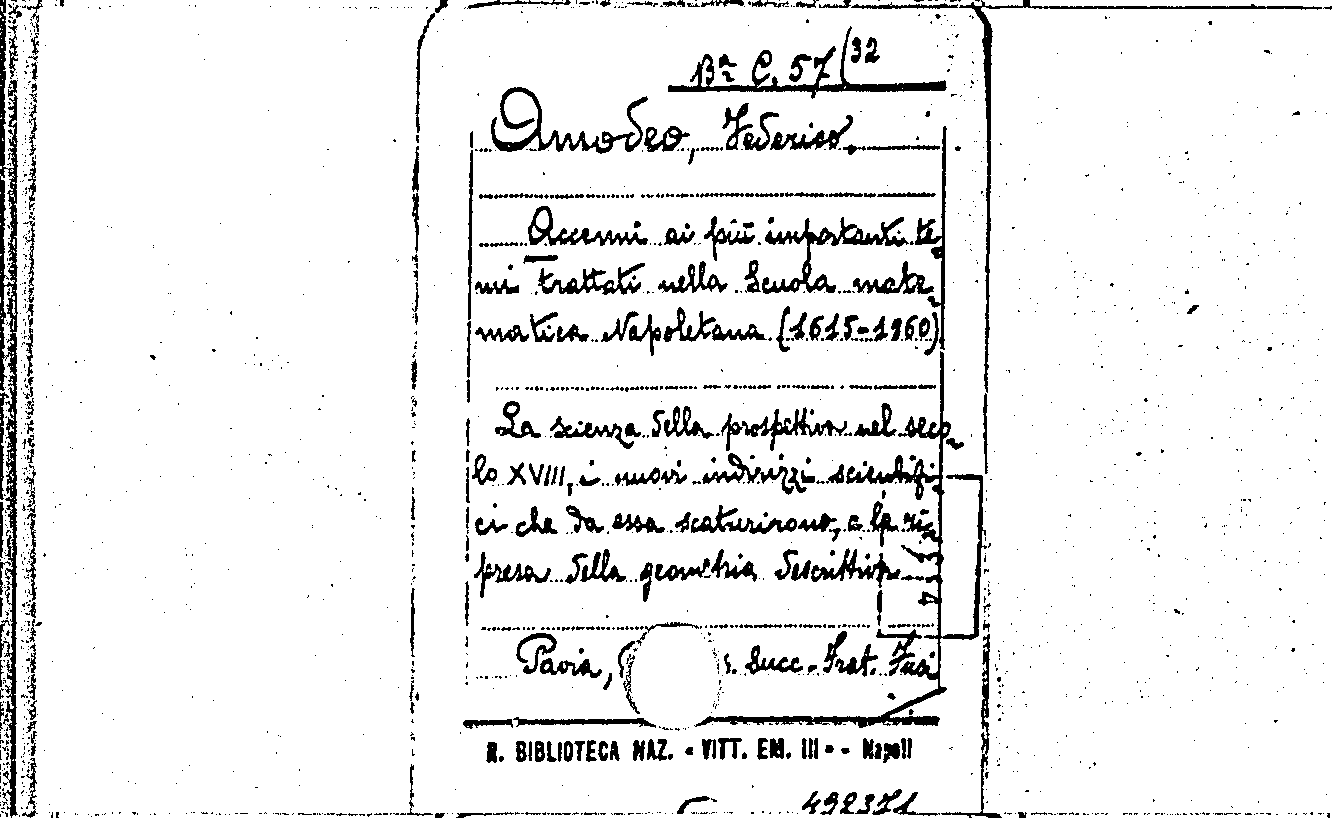 Bª C. 57 (32
Amodeo, Federico.
Accenni ai più importanti te-
mi trattati nella Scuola mate-
matica Napoletana (1615-1860)
La scienza della prospettiva nel seco-
lo XVIII, i nuovi indirizzi scientifi-
ci che da essa scaturirono, e la ri-
presa della geometria descrittiva
Pavia, Succ. Frat. Fusi
R. BIBLIOTECA NAZ. « VITT. EM. III » - Napoli
492371